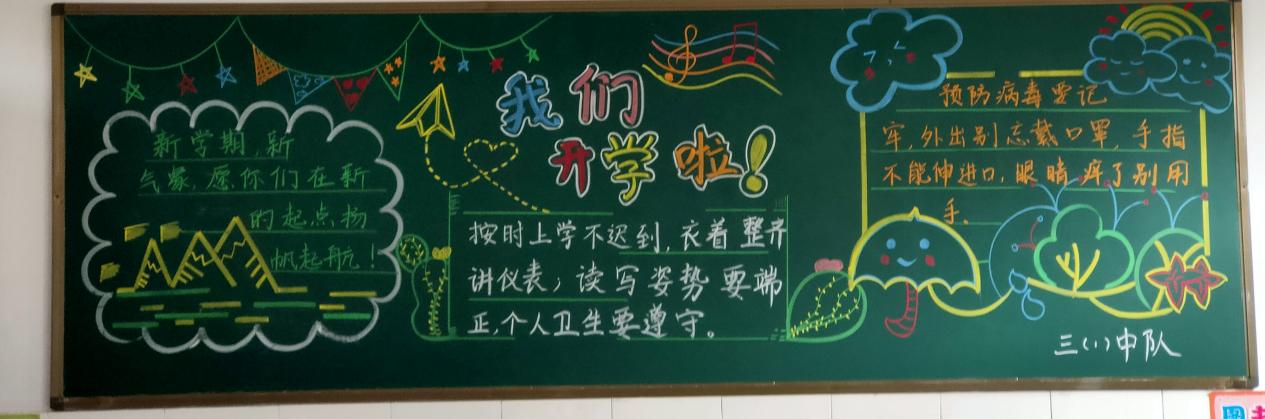 我们
开学啦！
新学期，新
气象，愿你们在新
的起点扬
帆起航！
按时上学不迟到，衣着整齐
讲仪表；读写姿势要端
正，个人卫生要遵守。
预防病毒要记
牢，外出别忘戴口罩，手指
不能伸进口，眼睛痒了别用
手。
三（1）中队